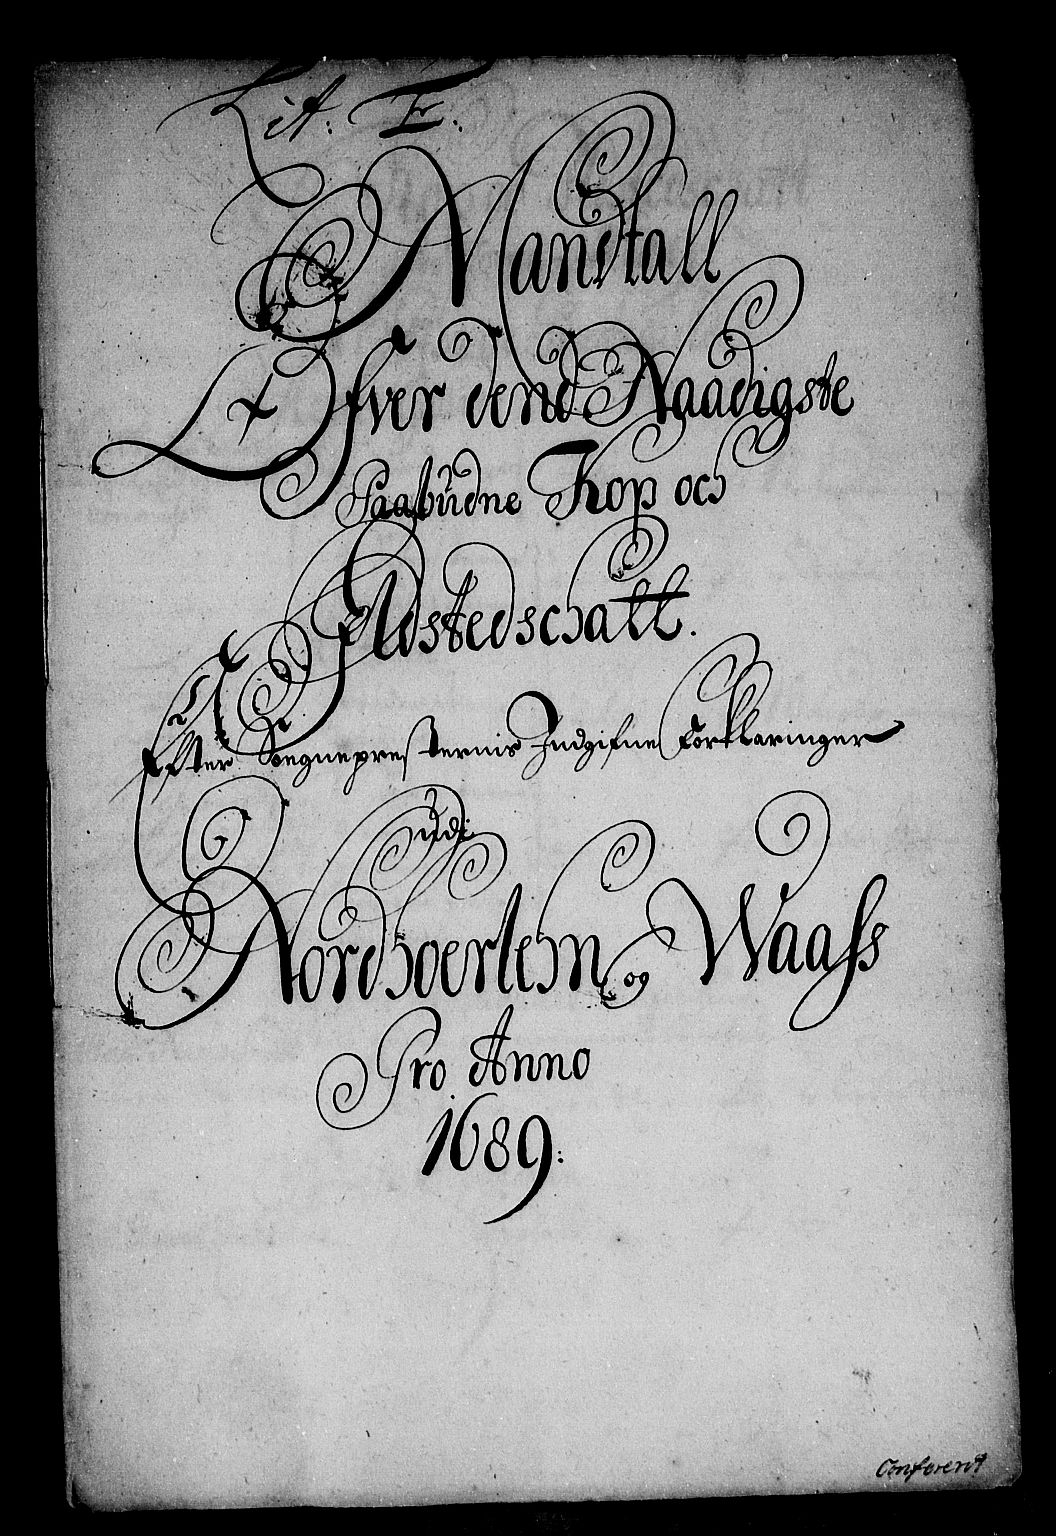 Lit. E.
Mandtall
Ofver dend Naadigste
Paabudne Kop och
Ildstedschatt.
Efter Sognepresternis Indgifne Forklaringer
udi
Nordhoerlehn og Waass
Pro Anno
1689:
Conferert